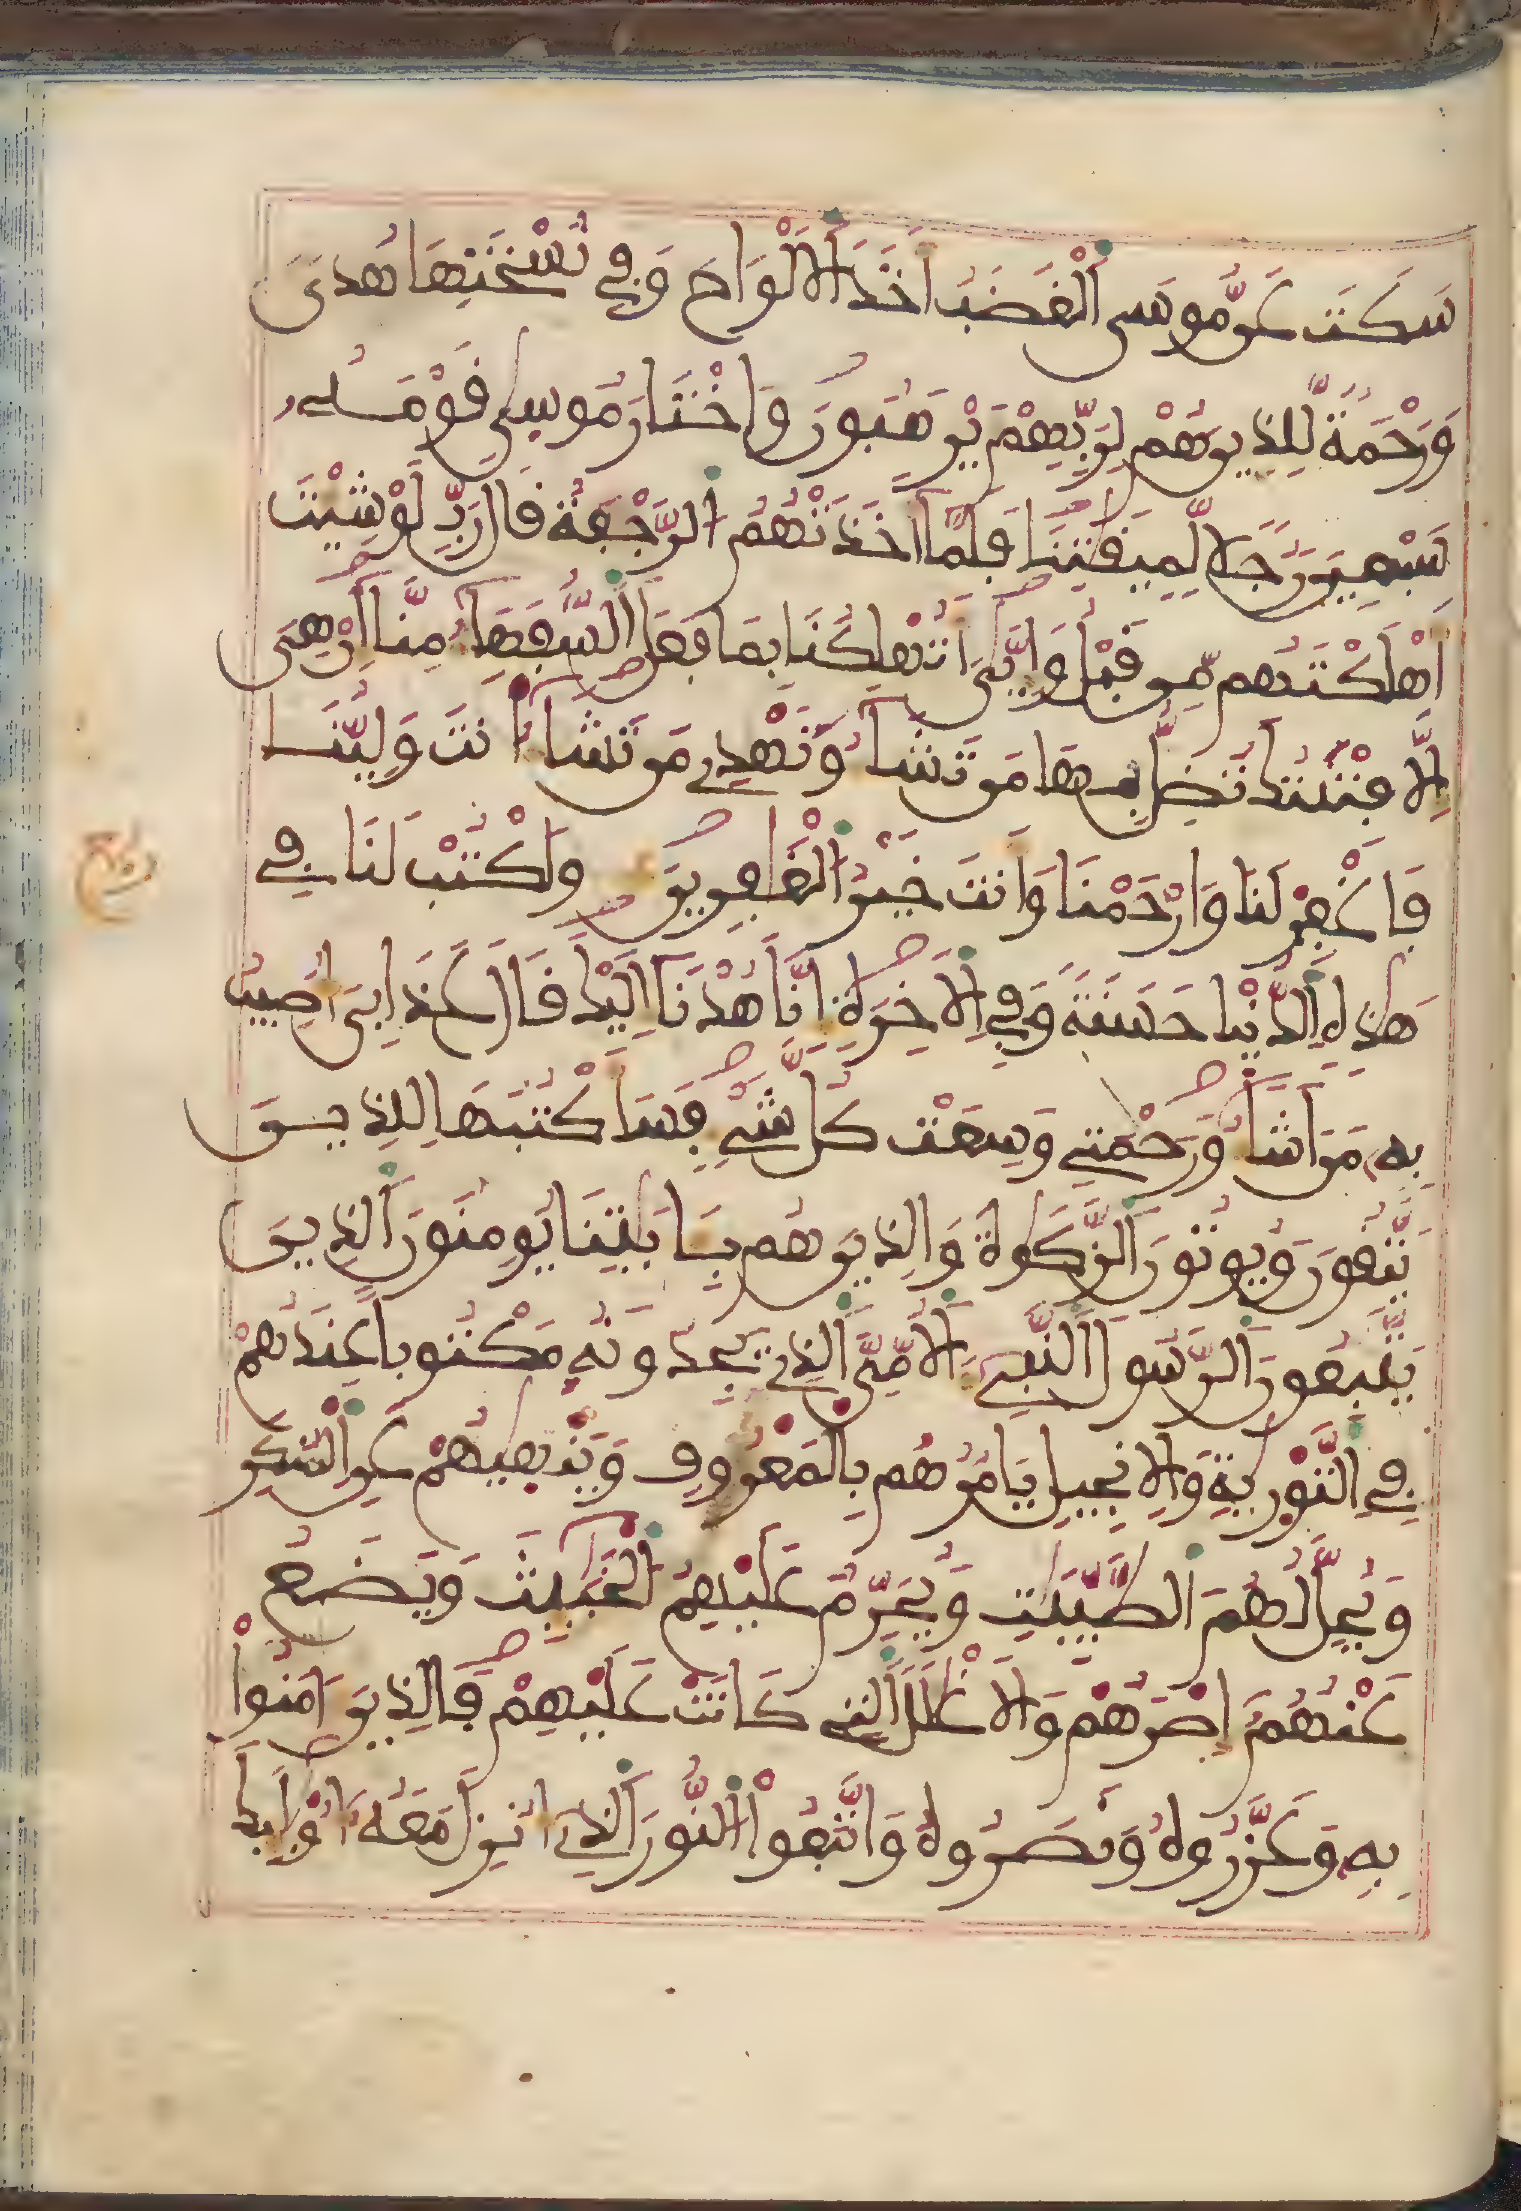 سَكَتَ عَن مُّوسَى اَ۬لْغَضَبُ أَخَذَ اَ۬لَالْوَاحَ وَفِي نُسْخَتِهَا هُدىٗ
وَرَحْمَةٞ لِّلذِينَ هُمْ لِرَبِّهِمْ يَرْهَبُونَ وَاخْتَارَ مُوسۭىٰ قَوْمَهُۥ
سَبْعِينَ رَجُلاٗ لِّمِيقَٰتِنَا فَلَمَّآ أَخَذَتْهُمُ اُ۬لرَّجْفَةُ قَالَ رَبِّ لَوْ شِيْتَ
أَهْلَكْتَهُم مِّن قَبْلُ وَإِيَّٰىَ أَتُهْلِكُنَا بِمَا فَعَلَ اَ۬لسُّفَهَآءُ مِنَّآ إِنْ هِىَ
إِلَّا فِتْنَتُكَ تُضِلُّ بِهَا مَن تَشَآءُ وَتَهْدِے مَن تَشَآءُ انتَ وَلِيُّنَا
فَاغْفِرْ لَنَا وَارْحَمْنَا وَأَنتَ خَيْرُ اُ۬لْغَٰفِرِينَ وَاكْتُبْ لَنَا فِے
هَٰذِهِ اِ۬لدُّنْيا حَسَنَةٗ وَفِے اِ۬لَاخِرَةِ إِنَّا هُدْنَآ إِلَيْكَ قَالَ عَذَابِىَ أُصِيبُ
بِهِۦ مَنَ اَشَآءُ وَرَحْمَتِے وَسِعَتْ كُلَّ شَےْءٖ فَسَأَكْتُبُهَا لِلذِينَ
يَتَّقُونَ وَيُوتُونَ اَ۬لزَّكَوٰةَ وَالذِينَ هُم بِـَٔايَٰتِنَا يُومِنُونَ اَ۬لذِينَ
يَتَّبِعُونَ اَ۬لرَّسُولَ اَ۬لنَّبِےٓءَ اَ۬لُامِّىَّ اَ۬لذِے يَجِدُونَهُۥ مَكْتُوباً عِندَهُمْ
فِے اِ۬لتَّوْرَيٰةِ وَالِانجِيلِ يَامُرُهُم بِالْمَعْرُوفِ وَيَنْهَيٰهُمْ عَنِ اِ۬لْمُنكَرِ
وَيُحِلُّ لَهُمُ اُ۬لطَّيِّبَٰتِ وَيُحَرِّمُ عَلَيْهِمُ اُ۬لْخَبَٰٓئِثَ وَيَضَعُ
عَنْهُمُۥٓ إِصْرَهُمْ وَالَاغْلَٰلَ اَ۬لتِے كَانَتْ عَلَيْهِمْ فَالذِينَ ءَامَنُواْ
بِهِۦ وَعَزَّرُوهُ وَنَصَرُوهُ وَاتَّبَعُواْ اُ۬لنُّورَ اَ۬لذِےٓ أُنزِلَ مَعَهُۥٓ أُوْلَٰٓئِكَ